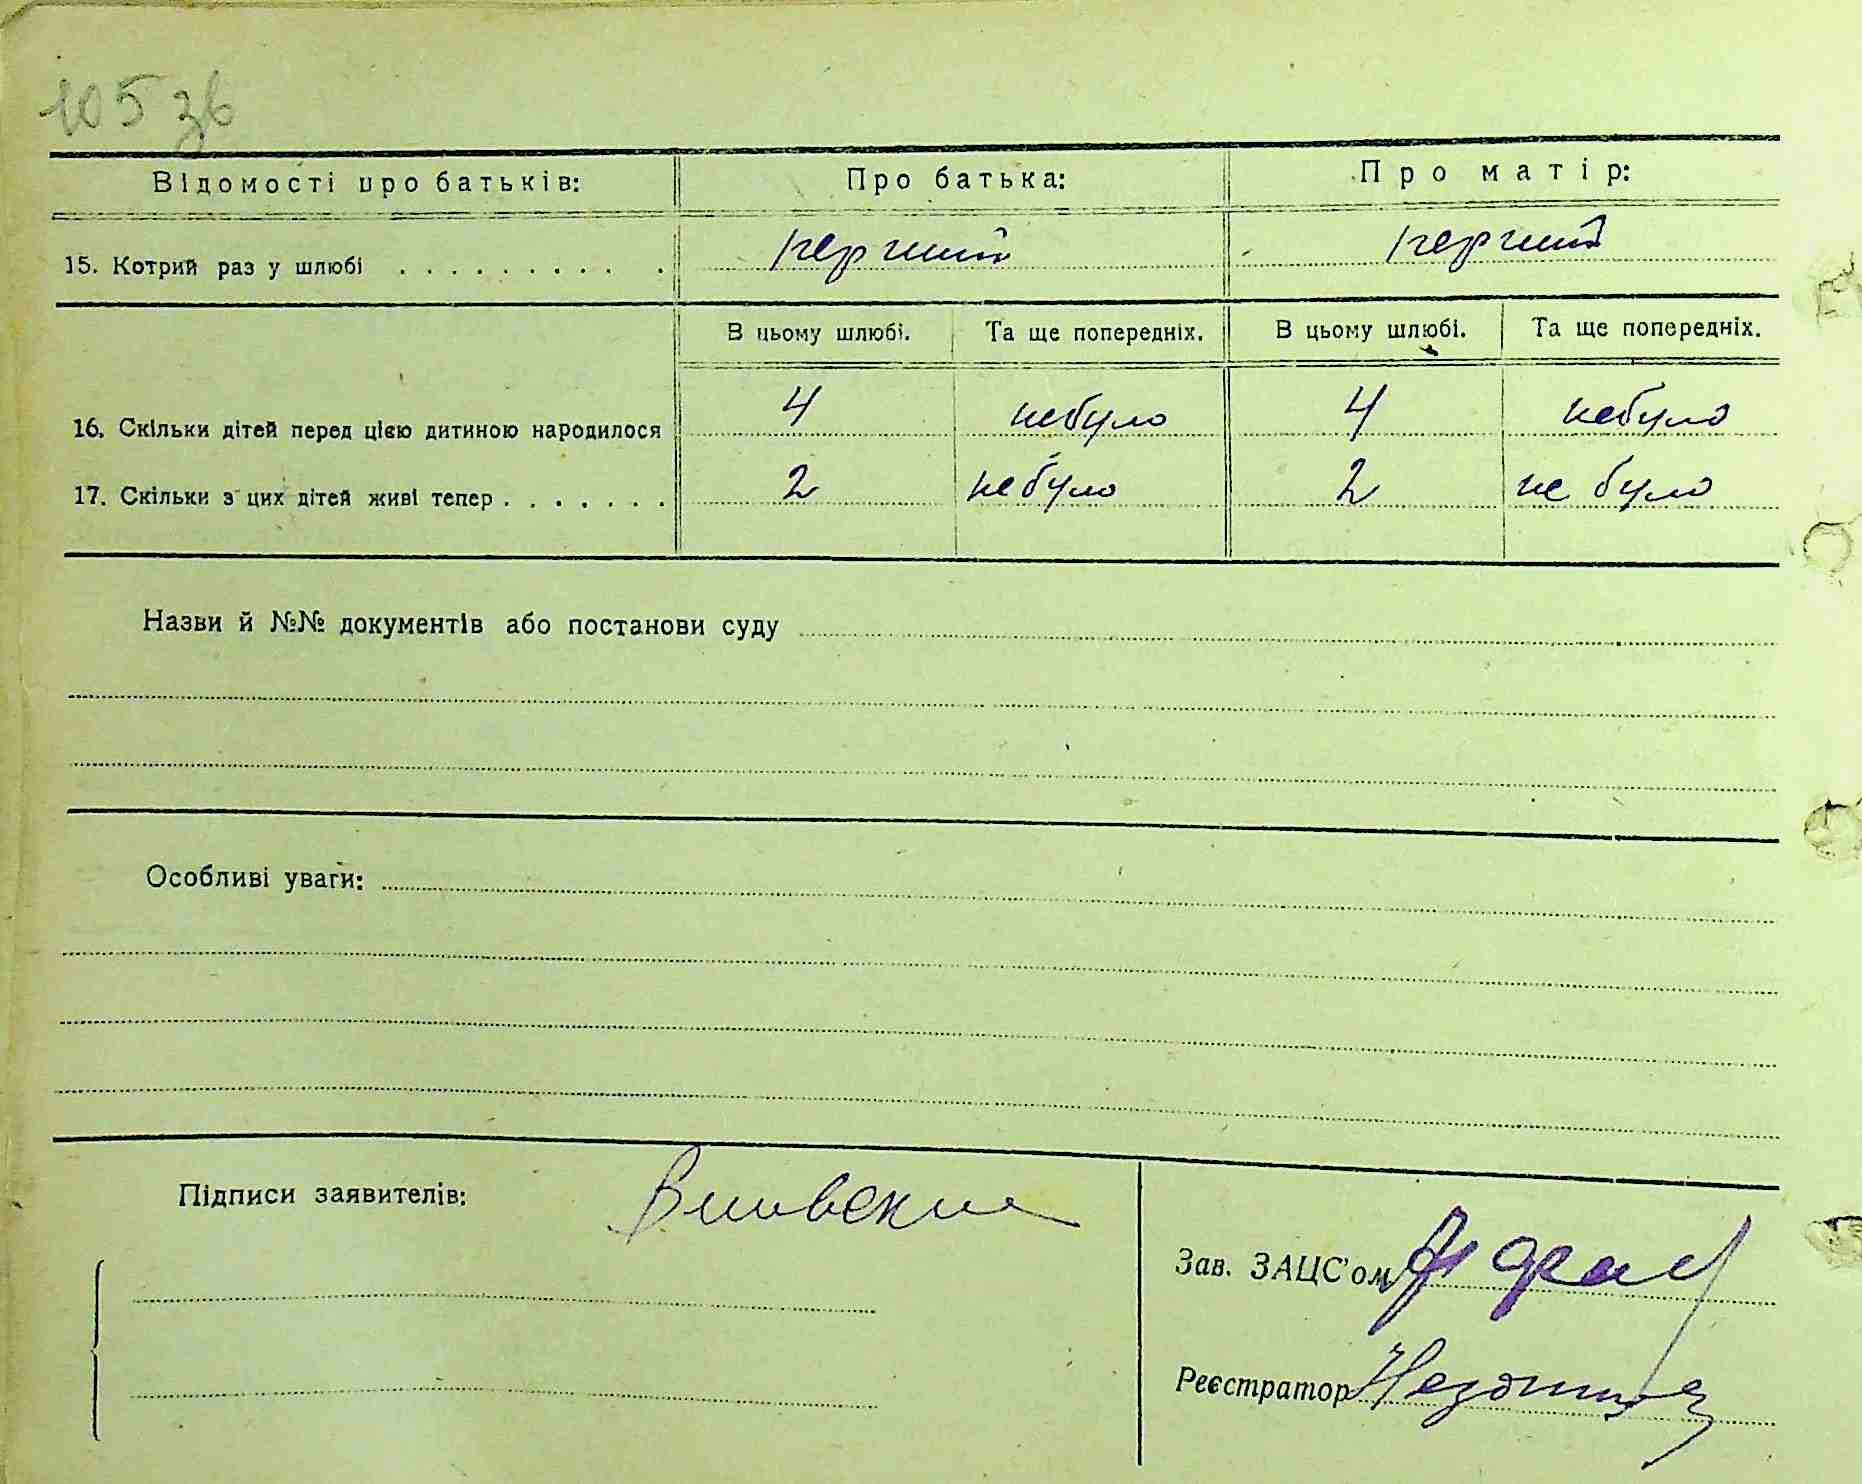 105 зв
Відомості про батьків: Про батька: Про матір:
15. Котрий раз у шлюбі . . . . . . . . . . перший перший
В цьому шлюбі. Та ще попередніх. В цьому шлюбі. Та ще попередніх.
16. Скільки дітей перед цією дитиною народилося 4 небуло 4 небуло
17. Скільки з цих дітей живі тепер . . . . . . . 2 не було 2 не було
Назви й №№ документів або постанови суду
Особливі уваги:
Підписи заявителів:
Зав. ЗАЦС'ом
Реєстратор